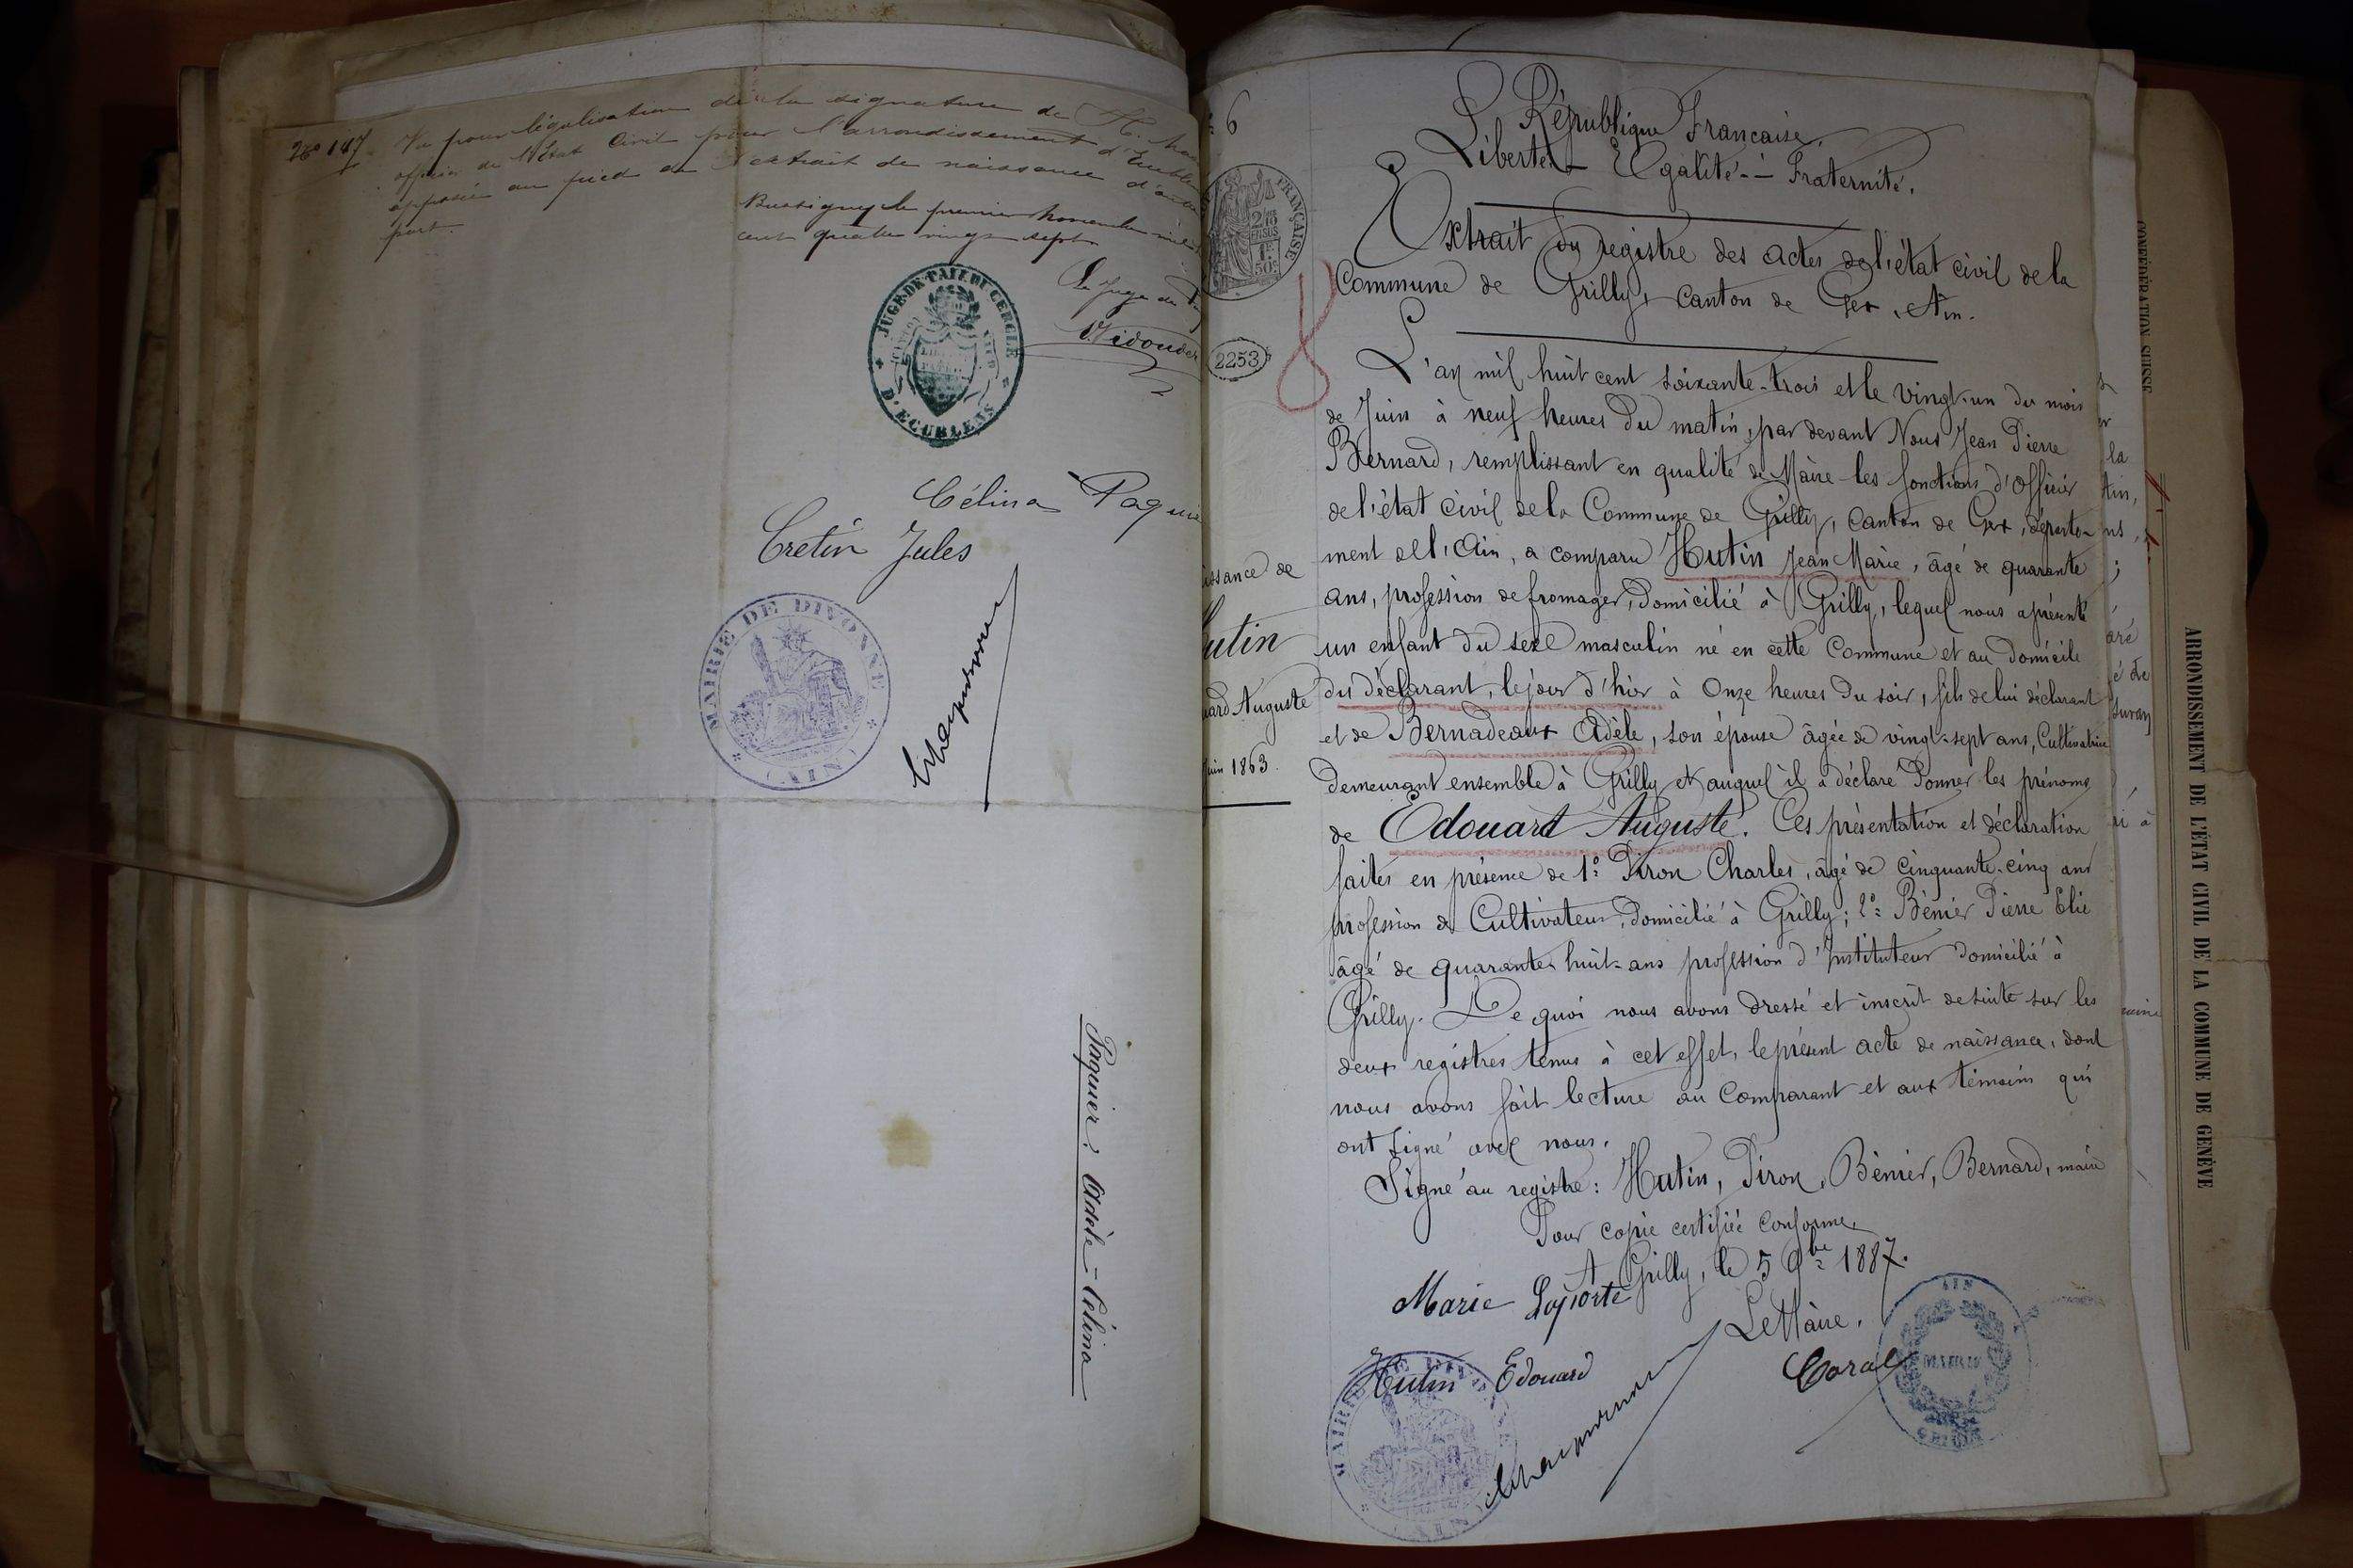 No 147 Vu pour légalisation de la signature de M.
officier de l'Etat Civil pour l'arrondissement d'Ecublens
apposée au pied de l'extrait de naissance d'autre
part.
Bussigny le premier Novembre mil
cent quatre vingt sept
Le Juge de
JUGE DE PAIX DU CERCLE
D'ECUBLENS
Célina Paquier
Cretin Jules
MAIRIE DE DIVONNE
(AIN)
Paquier, Adèle-Célina
6
République Française.
Liberté - Egalité - Fraternité.
FRANÇAISE
2/10
EN SUS
1F
50c
Extrait du registre des actes de l'état civil de la
Commune de Grilly, Canton de Gex, Ain.
2253
L'an mil huit cent soixante-trois et le vingt-un du mois
de Juin à neuf heures du matin, par devant Nous Jean Pierre
Bernard, remplissant en qualité de Maire les fonctions d'officier
de l'état civil de la Commune de Grilly, Canton de Gex, départe-
ment de l'Ain, a comparu Hutin Jean Marie, âgé de quarante
ans, profession de fromager, domicilié à Grilly, lequel nous a présenté
un enfant du sexe masculin né en cette Commune et au domicile
du déclarant, le jour d'hier à onze heures du soir, fils de lui déclarant
et de Bernadeaux Adèle, son épouse âgée de vingt-sept ans, Cultivatrice
demeurant ensemble à Grilly et auquel il a déclaré donner les prénoms
de Edouard Auguste. Ces présentation et déclaration
faites en présence de 1º Piron Charles, âgé de cinquante-cinq ans
profession de Cultivateur, domicilié à Grilly; 2º Bénier Pierre Elie
âgé de quarante huit ans profession d'Instituteur domicilié à
Grilly. De quoi nous avons dressé et inscrit de suite sur les
deux registres tenus à cet effet, le présent acte de naissance, dont
nous avons fait lecture au Comparant et aux témoins qui
ont signé avec nous.
Signé au registre: Hutin, Piron, Bénier, Bernard, maire
Pour copie certifiée conforme.
A Grilly, le 5 9bre 1887.
Marie Laporte
Le Maire.
Hutin Edouard
MAIRIE
AIN
MAIRIE DE DIVONNE
issance de
utin
ard Auguste
Juin 1863.
CONFÉDÉRATION SUISSE
ARRONDISSEMENT DE L'ÉTAT CIVIL DE LA COMMUNE DE GENÈVE